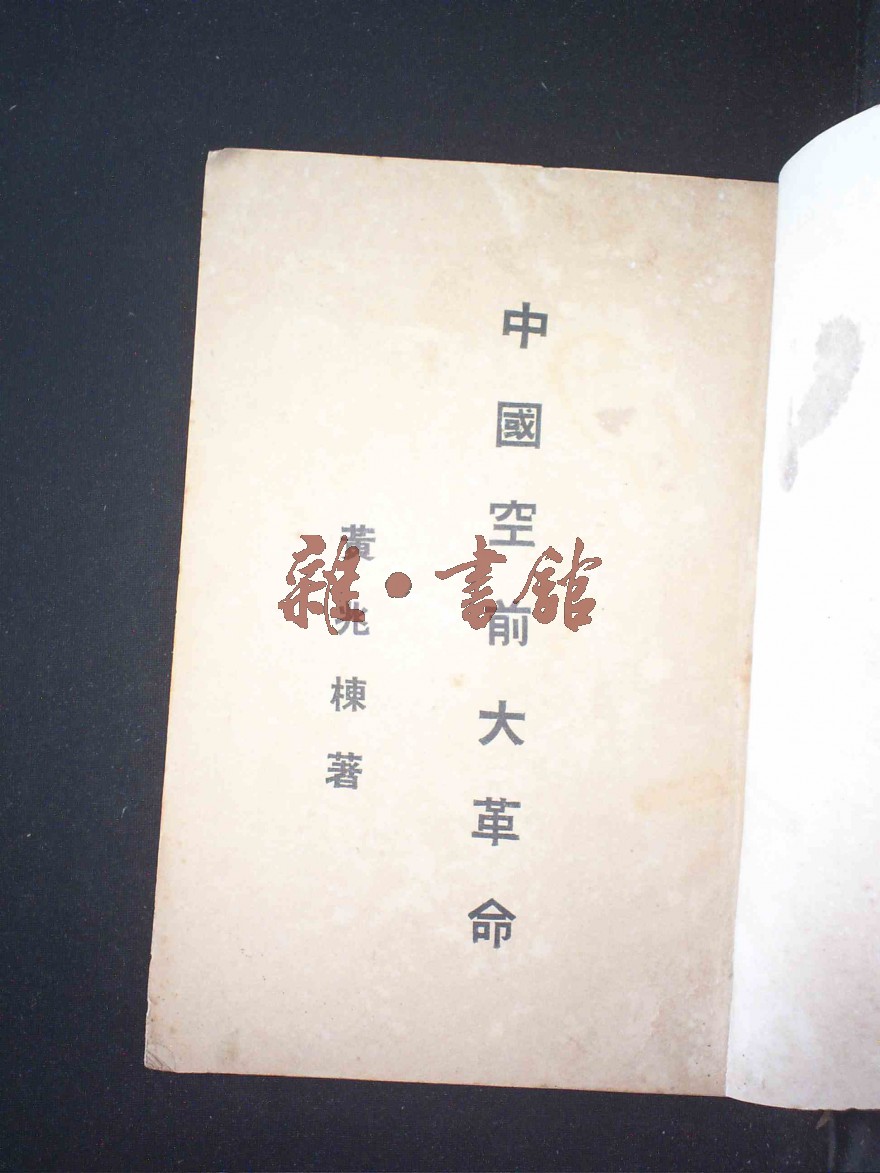 中國空前大革命
黃兆棟著
雜·書館